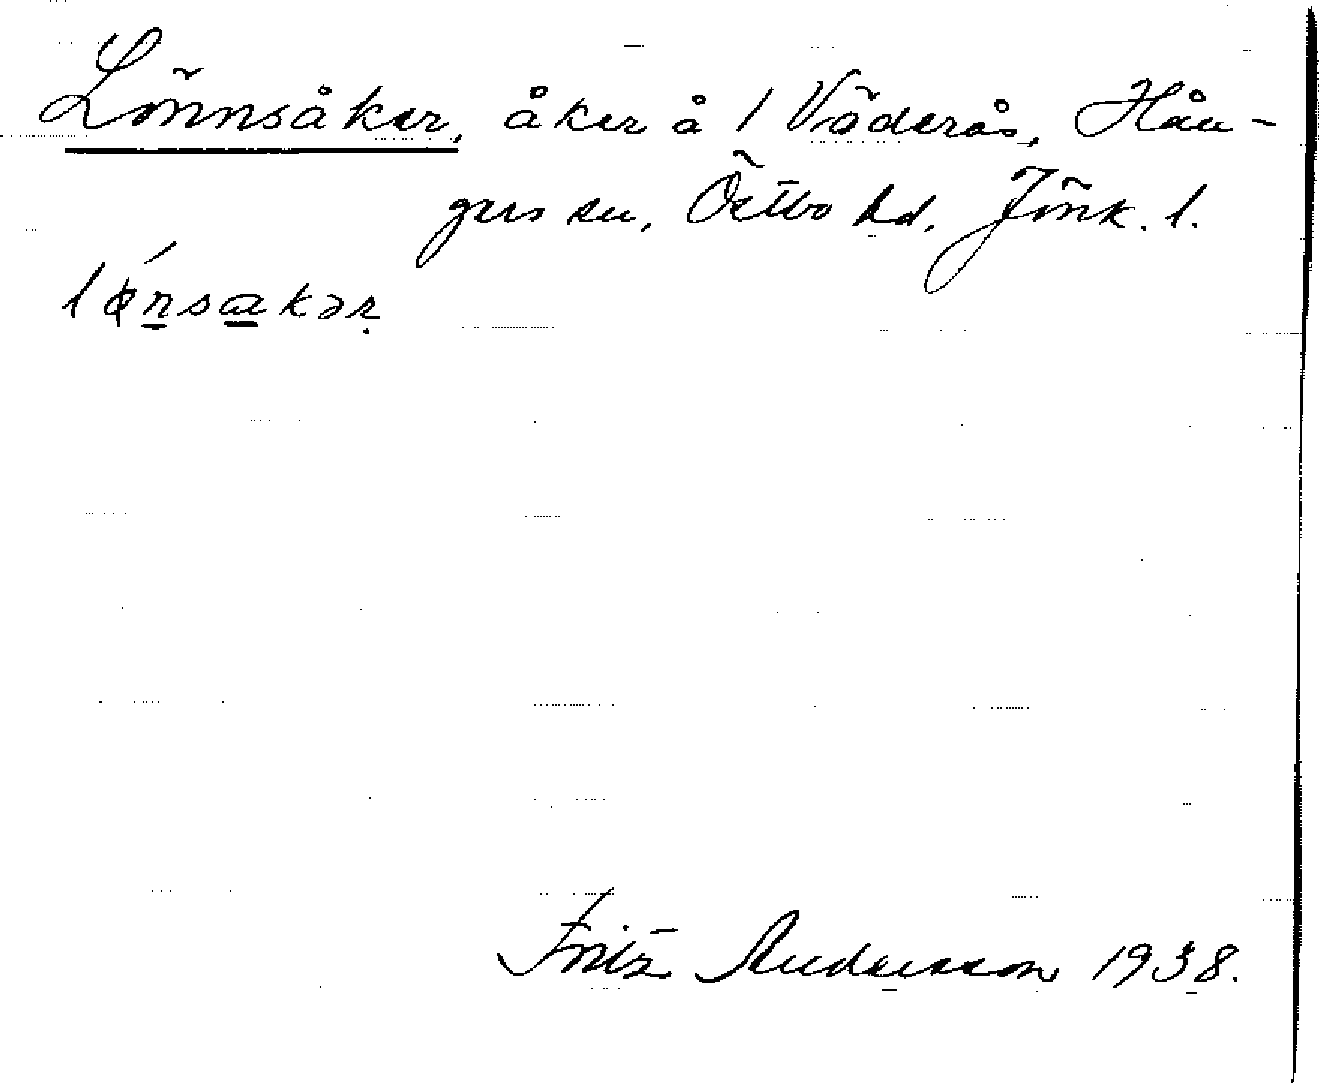 Lönnsåker, åker å 1 Väderås, Hån-
gers sn, Östbo hd, Jönk. l.
lǿnsakər
Fritz Andersson 1938.